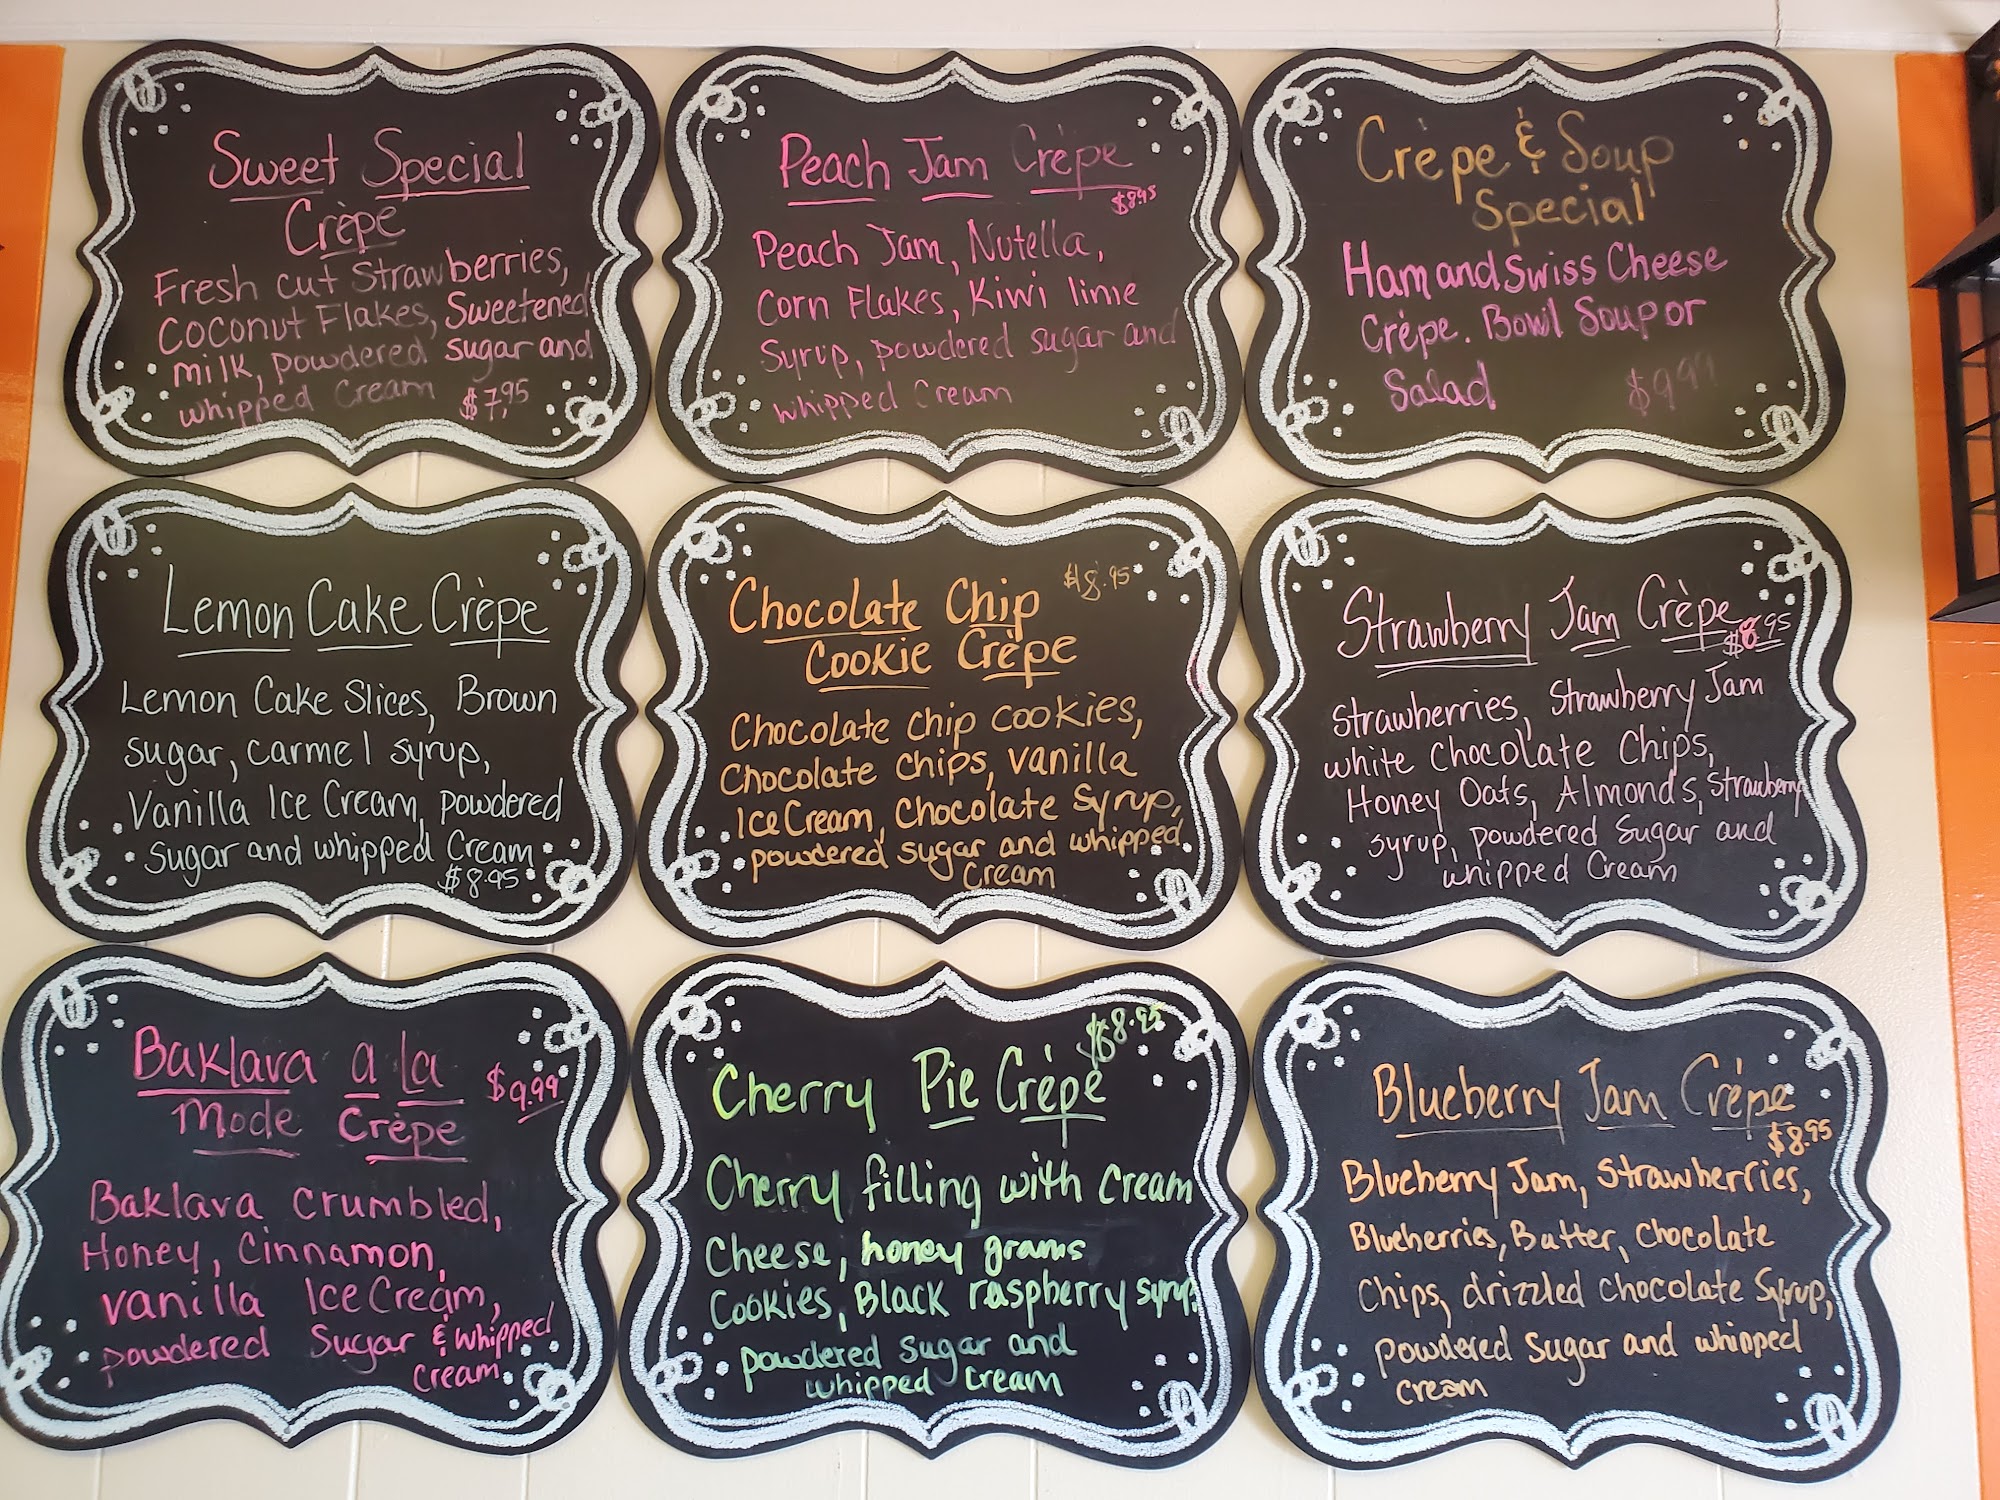 Sweet Special
Crèpe
Fresh cut Strawberries,
Coconut Flakes, Sweetened
milk, powdered sugar and
whipped Cream $7.95
Peach Jam Crèpe
$8.95
Peach Jam, Nutella,
Corn Flakes, Kiwi lime
Syrup, powdered sugar and
whipped Cream
Crèpe & Soup
Special
Ham and Swiss Cheese
Crèpe. Bowl Soup or
Salad $9.99
Lemon Cake Crèpe
Lemon Cake Slices, Brown
sugar, carmel syrup,
Vanilla Ice Cream, powdered
sugar and whipped Cream
$8.95
Chocolate Chip $8.95
Cookie Crèpe
Chocolate chip cookies,
Chocolate chips, vanilla
Ice Cream, Chocolate Syrup,
powdered sugar and whipped
Cream
Strawberry Jam Crèpe
$8.95
Strawberries, Strawberry Jam
white Chocolate Chips,
Honey Oats, Almonds, Strawberry
syrup, powdered Sugar and
whipped Cream
Baklava a La
Mode Crèpe $9.99
Baklava crumbled,
Honey, Cinnamon,
vanilla Ice Cream,
powdered Sugar & whipped
cream
$8.95
Cherry Pie Crèpe
Cherry filling with Cream
Cheese, honey grams
Cookies, Black raspberry syrup,
powdered sugar and
whipped cream
Blueberry Jam Crèpe
$8.95
Blueberry Jam, Strawberries,
Blueberries, Butter, Chocolate
Chips, drizzled chocolate Syrup,
powdered Sugar and whipped
cream